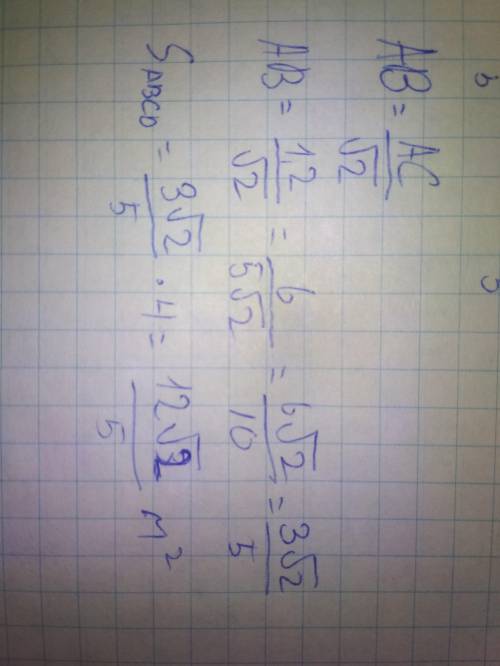 AB = AC/√2
AB = 1,2/√2 = 6/5√2 = 6√2/10 = 3√2/5
S_ABCD = 3√2/5 · 4 = 12√2/5 м²